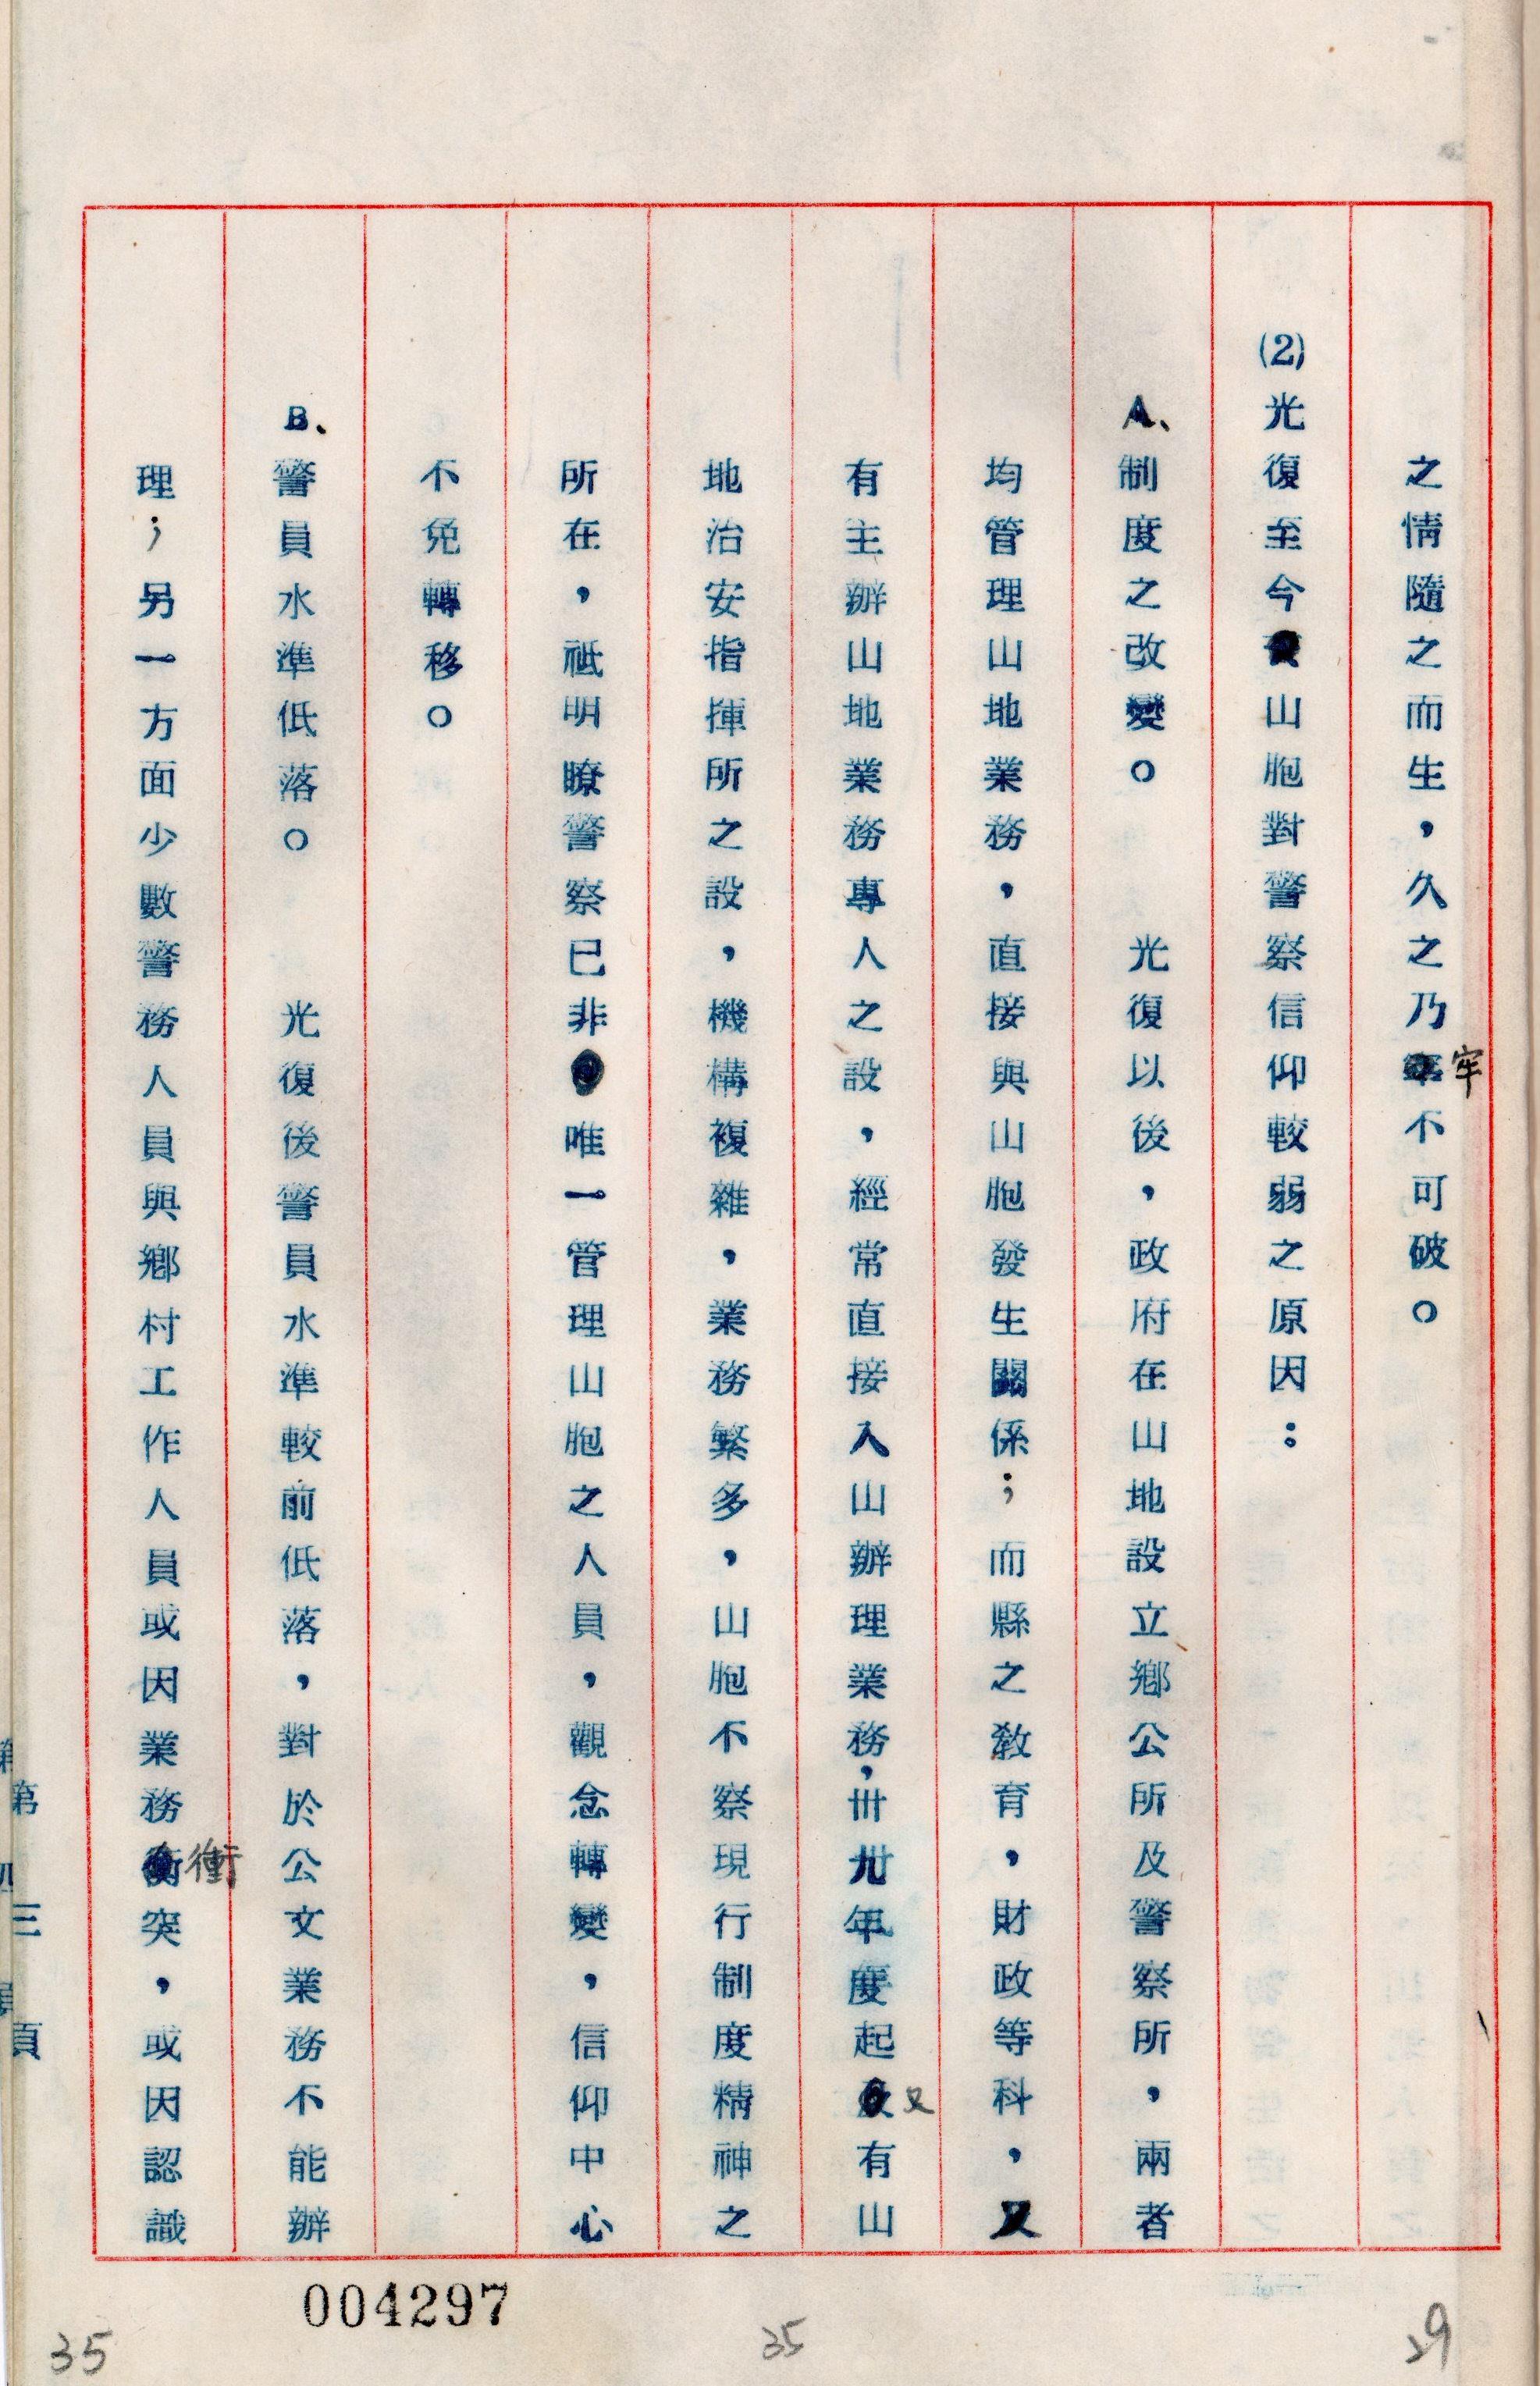 之情隨之而生，久之乃牢不可破。
(2)光復至今山胞對警察信仰較弱之原因：
A、制度之改變。　光復以後，政府在山地設立鄉公所及警察所，兩者
均管理山地業務，直接與山胞發生關係；而縣之教育，財政等科，又
有主辦山地業務專人之設，經常直接入山辦理業務，卅九年度起又有山
地治安指揮所之設，機構複雜，業務繁多，山胞不察現行制度精神之
所在，祗明瞭警察已非唯一管理山胞之人員，觀念轉變，信仰中心
不免轉移。
B、警員水準低落。　光復後警員水準較前低落，對於公文業務不能辦
理；另一方面少數警務人員與鄉村工作人員或因業務衝突，或因認識
第三頁
004297
35
35
29